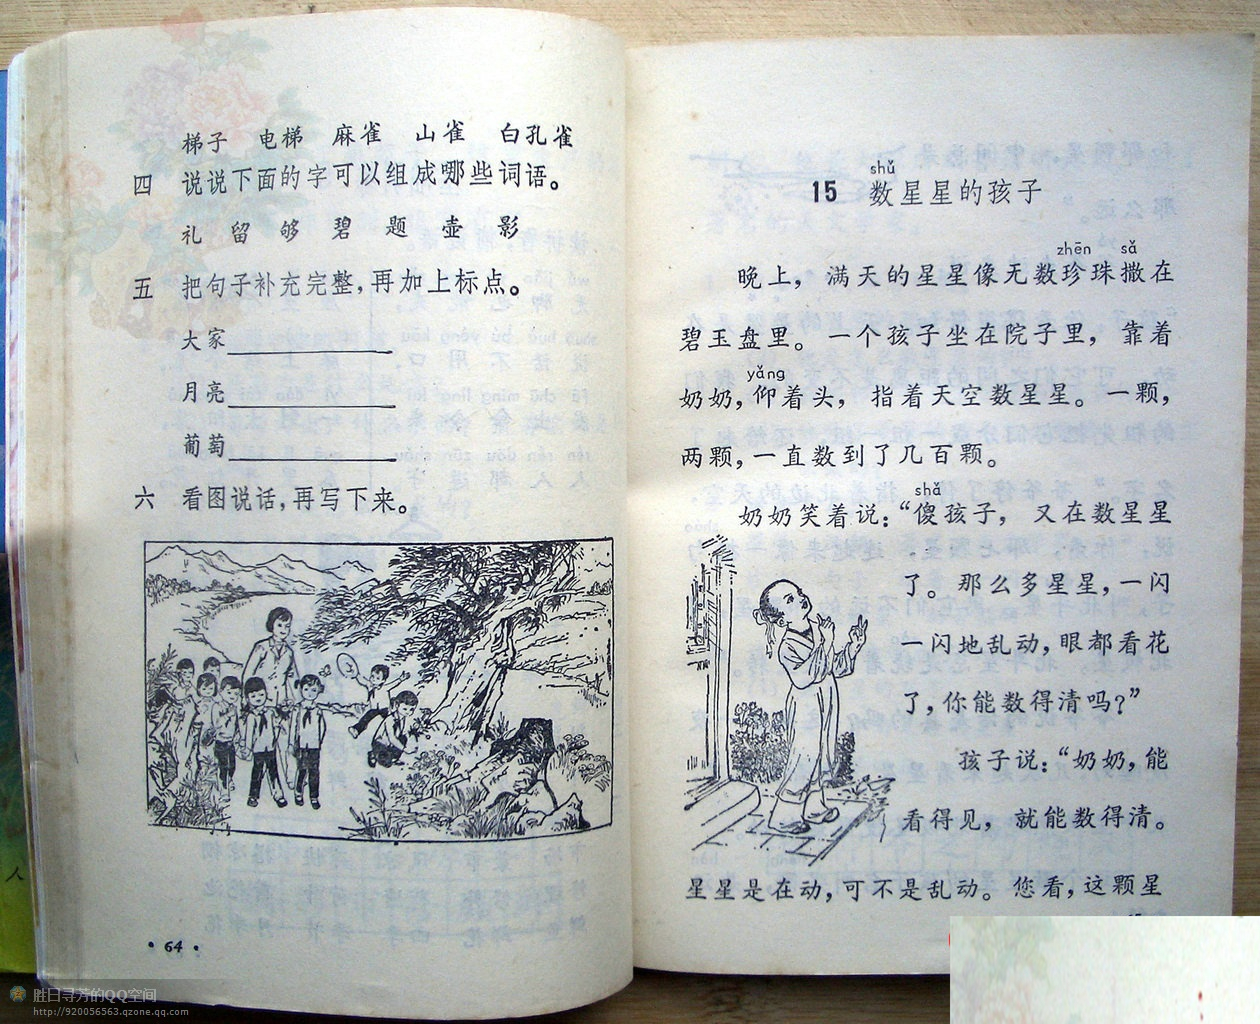 梯子 电梯 麻雀 山雀 白孔雀
四 说说下面的字可以组成哪些词语。
礼 留 够 碧 题 壶 影
五 把句子补充完整,再加上标点。
大家
月亮
葡萄
六 看图说话,再写下来。
·64·
shǔ
15 数星星的孩子
zhēn sǎ
晚上, 满天的星星像无数珍珠撒在
碧玉盘里。一个孩子坐在院子里, 靠着
yǎng
奶奶,仰着头, 指着天空数星星。一颗,
两颗,一直数到了几百颗。
shǎ
奶奶笑着说:“傻孩子, 又在数星星
了。那么多星星,一闪
一闪地乱动,眼都看花
了,你能数得清吗?”
孩子说:“奶奶,能
看得见, 就能数得清。
星星是在动,可不是乱动。您看,这颗星
人
胜日寻芳的QQ空间
http://920056563.qzone.qq.com